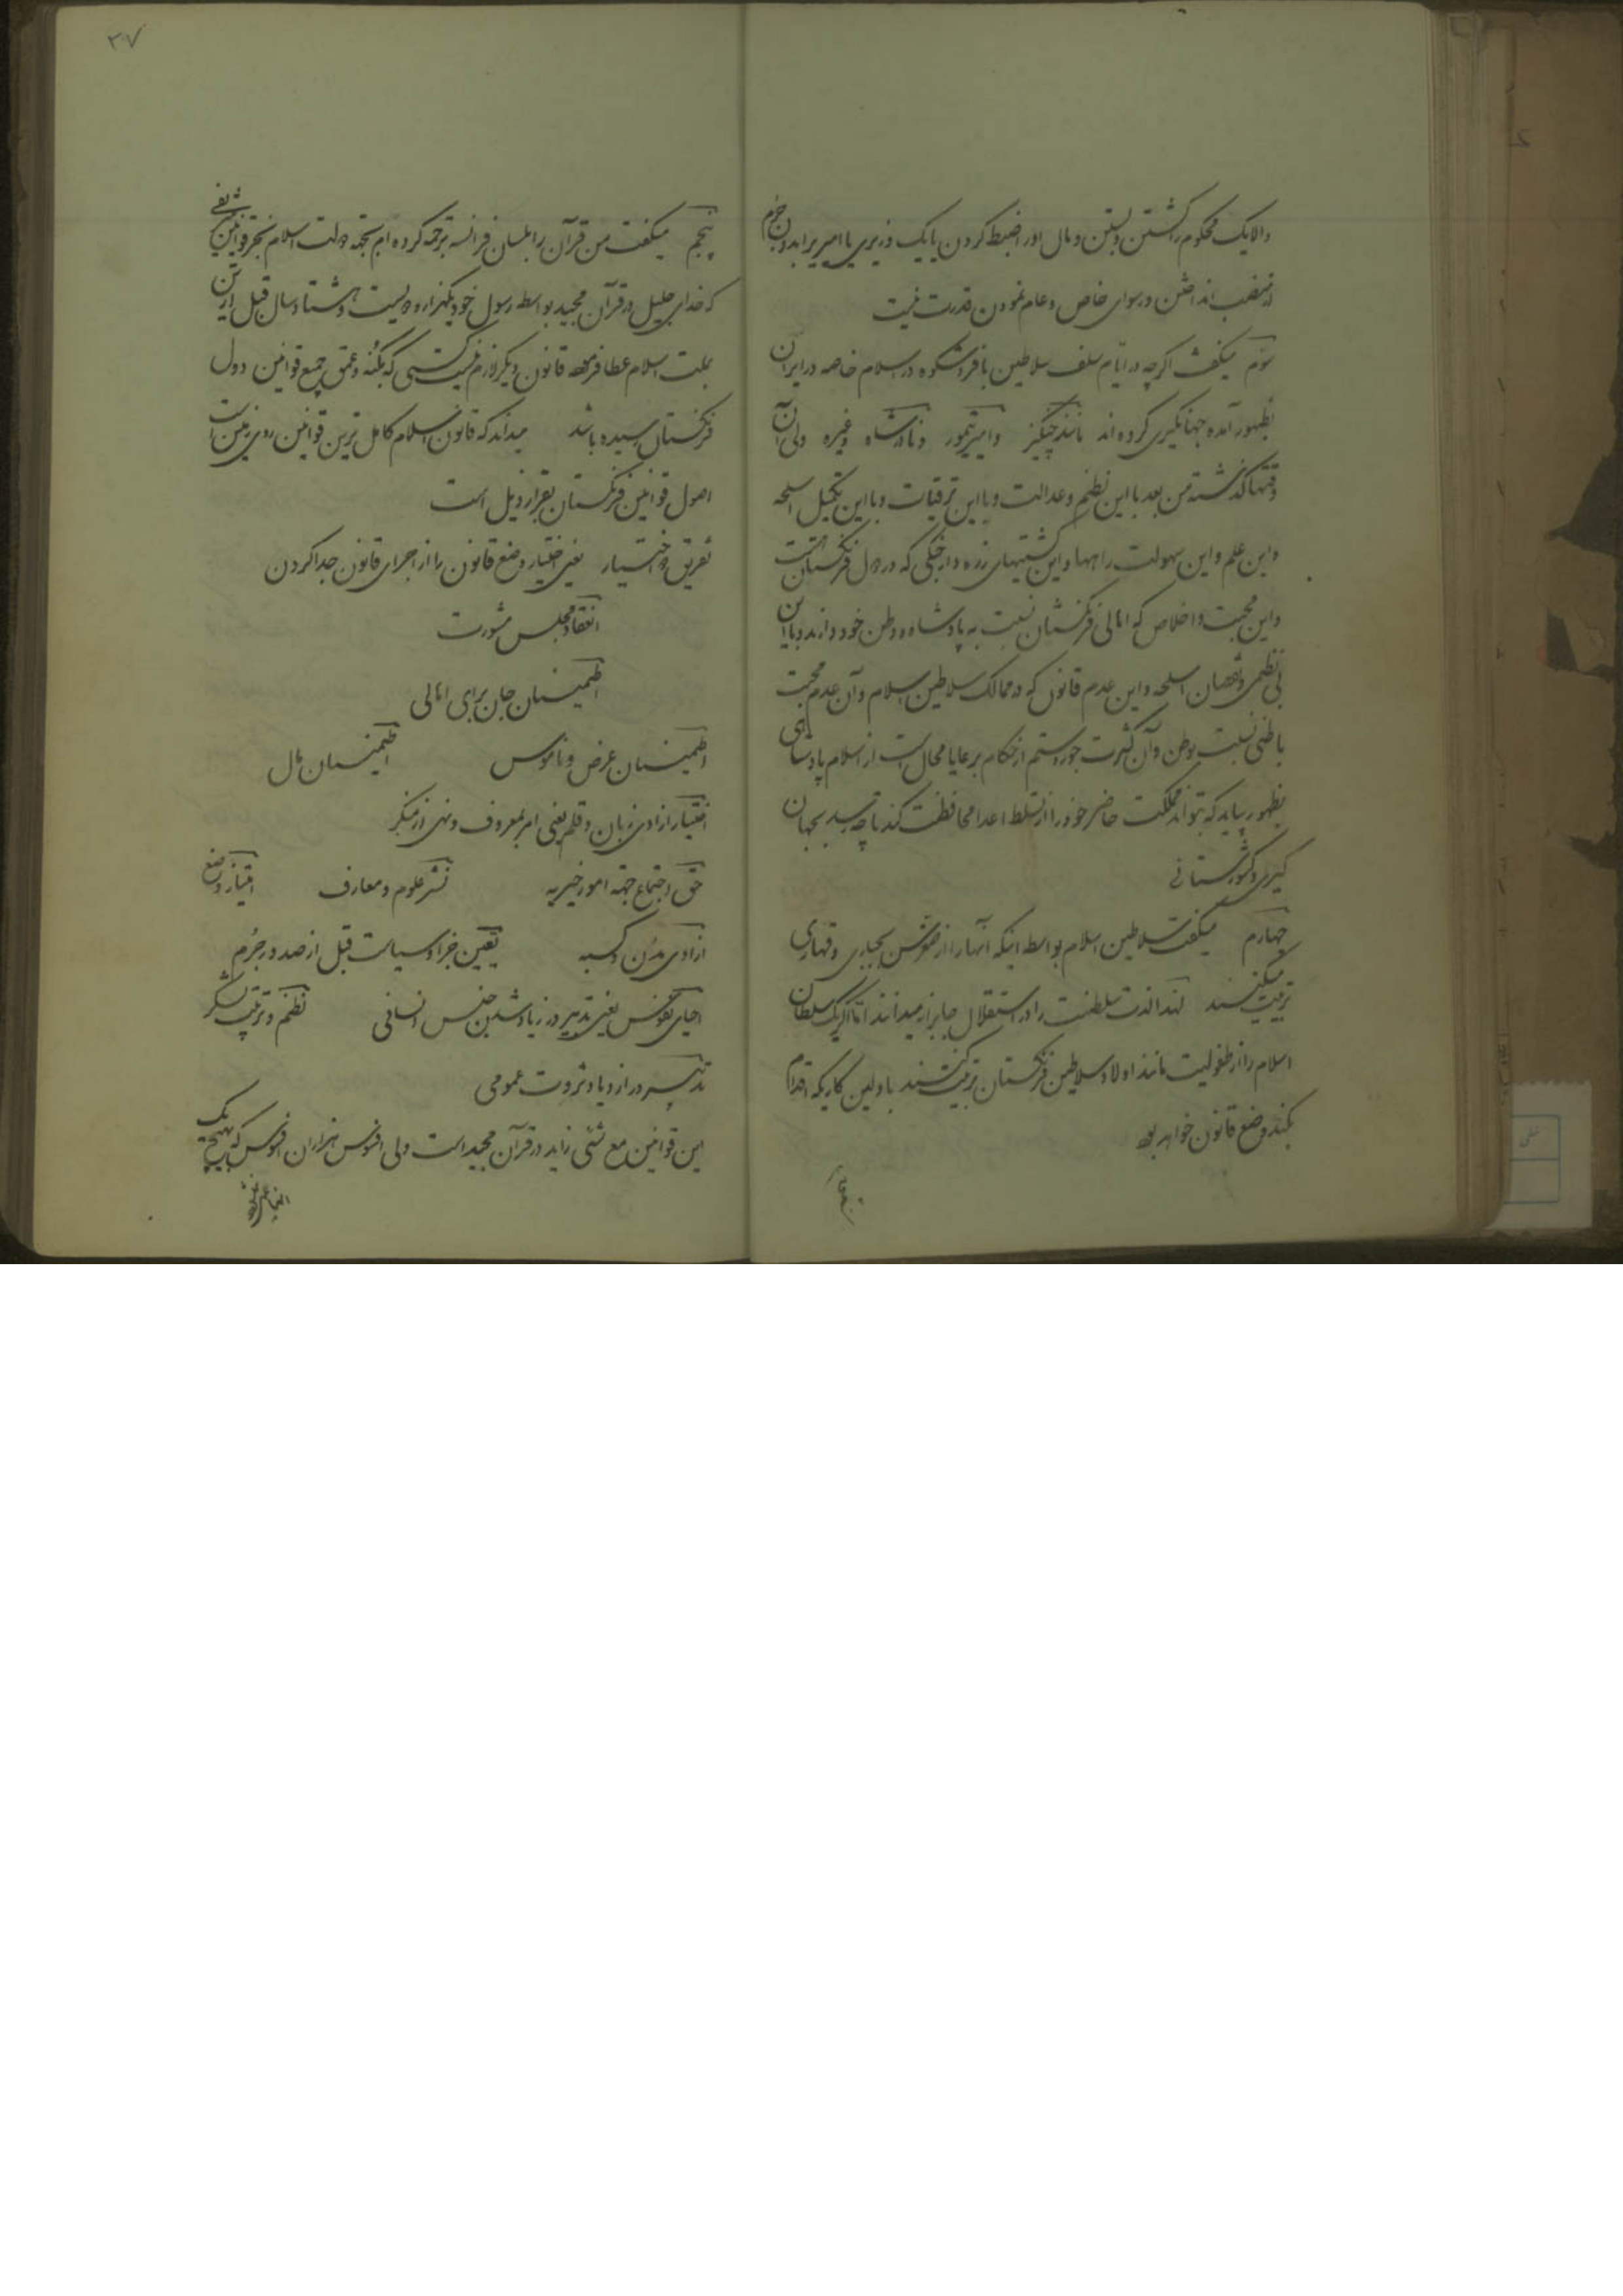 والا یک محکوم را کشتن و بستن و مال او را ضبط کردن یا یک وزیری یا امیریرا بدون جرم
از منصب انداختن و رسوای خاص و عام نمودن قدرت نیست
سوم میگفت اگرچه در ایام سلف سلاطین با فر و شکوه در اسلام خاصه در ایران
بظهور آمده جهانگیری کرده اند مانند چنگیز و امیر تیمور و نادرشاه و غیره ولی آن
وقتها گذشته من بعد با این نظم و عدالت و با این ترقیات و با این تکمیل اسلحه
و این علم و این سهولت راهها و این کشتیهای زره دار جنگی که در دول فرنگستان است
و این محبت و اخلاص که اهالی فرنگستان نسبت به پادشاه و وطن خود دارند و با این
بی نظمی و نقصان اسلحه و این عدم قانون که در ممالک سلاطین اسلام و آن عدم محبت
باطنی نسبت بوطن و آن کثرت جور و ستم از حکام بر رعایا محال است از اسلام پادشاهی
بظهور بیاید که بتواند مملکت حاضر خود را از تسلط اعدا محافظت کند تا چه رسد بجهان
گیری و کشورستانی
چهارم میگفت سلاطین اسلام بواسطه اینکه آنها را از خوش بجباری و قهاری
تربیت میکنند لهذا لذت سلطنت را در استقلال جابرانه میدانند اما اگر یک سلطان
اسلام را از طفولیت مانند اولاد سلاطین فرنگستان تربیت کنند باولین کاریکه اقدام
بکند وضع قانون خواهد بود
پنجم
۳۷
پنجم میگفت من قرآن را بلسان فرانسه ترجمه کرده ام بجهة دولت اسلام بجز قوانین شریفی
که خدای جلیل در قرآن مجید بواسطه رسول خود یکهزار و دویست و هشتاد سال قبل از این
بملت اسلام عطا فرموده قانون دیگر لازم نیست کسی که بکنه و عمق جمیع قوانین دول
فرنگستان رسیده باشد میداند که قانون اسلام کامل ترین قوانین روی زمین است
اصول قوانین فرنگستان بقرار ذیل است
تفریق اختیار یعنی اختیار وضع قانون را از اجرای قانون جدا کردن
انعقاد مجلس مشورت
اطمینان جان برای اهالی
اطمینان عرض و ناموس اطمینان مال
اختیار ازادی زبان و قلم یعنی امر بمعروف و نهی از منکر
حق اجتماع جهة امور خیریه نشر علوم و معارف امتیاز وضع
ازادی و کسبه تعیین جزا و سیاست قبل از صدور جرم
احیای نفوس یعنی تدبیر در زیاد شدن جنس انسانی نظم و ترتیب لشکر
تدبیر در ازدیاد ثروت عمومی
این قوانین مع شئی زاید در قرآن مجید است ولی افسوس هزاران افسوس که بهیچ یک